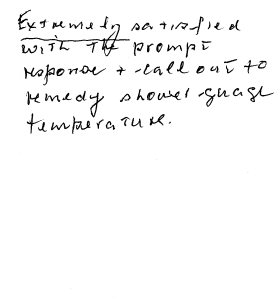 Extremely satisfied
with the prompt
response + call out to
remedy shower guage
temperature.